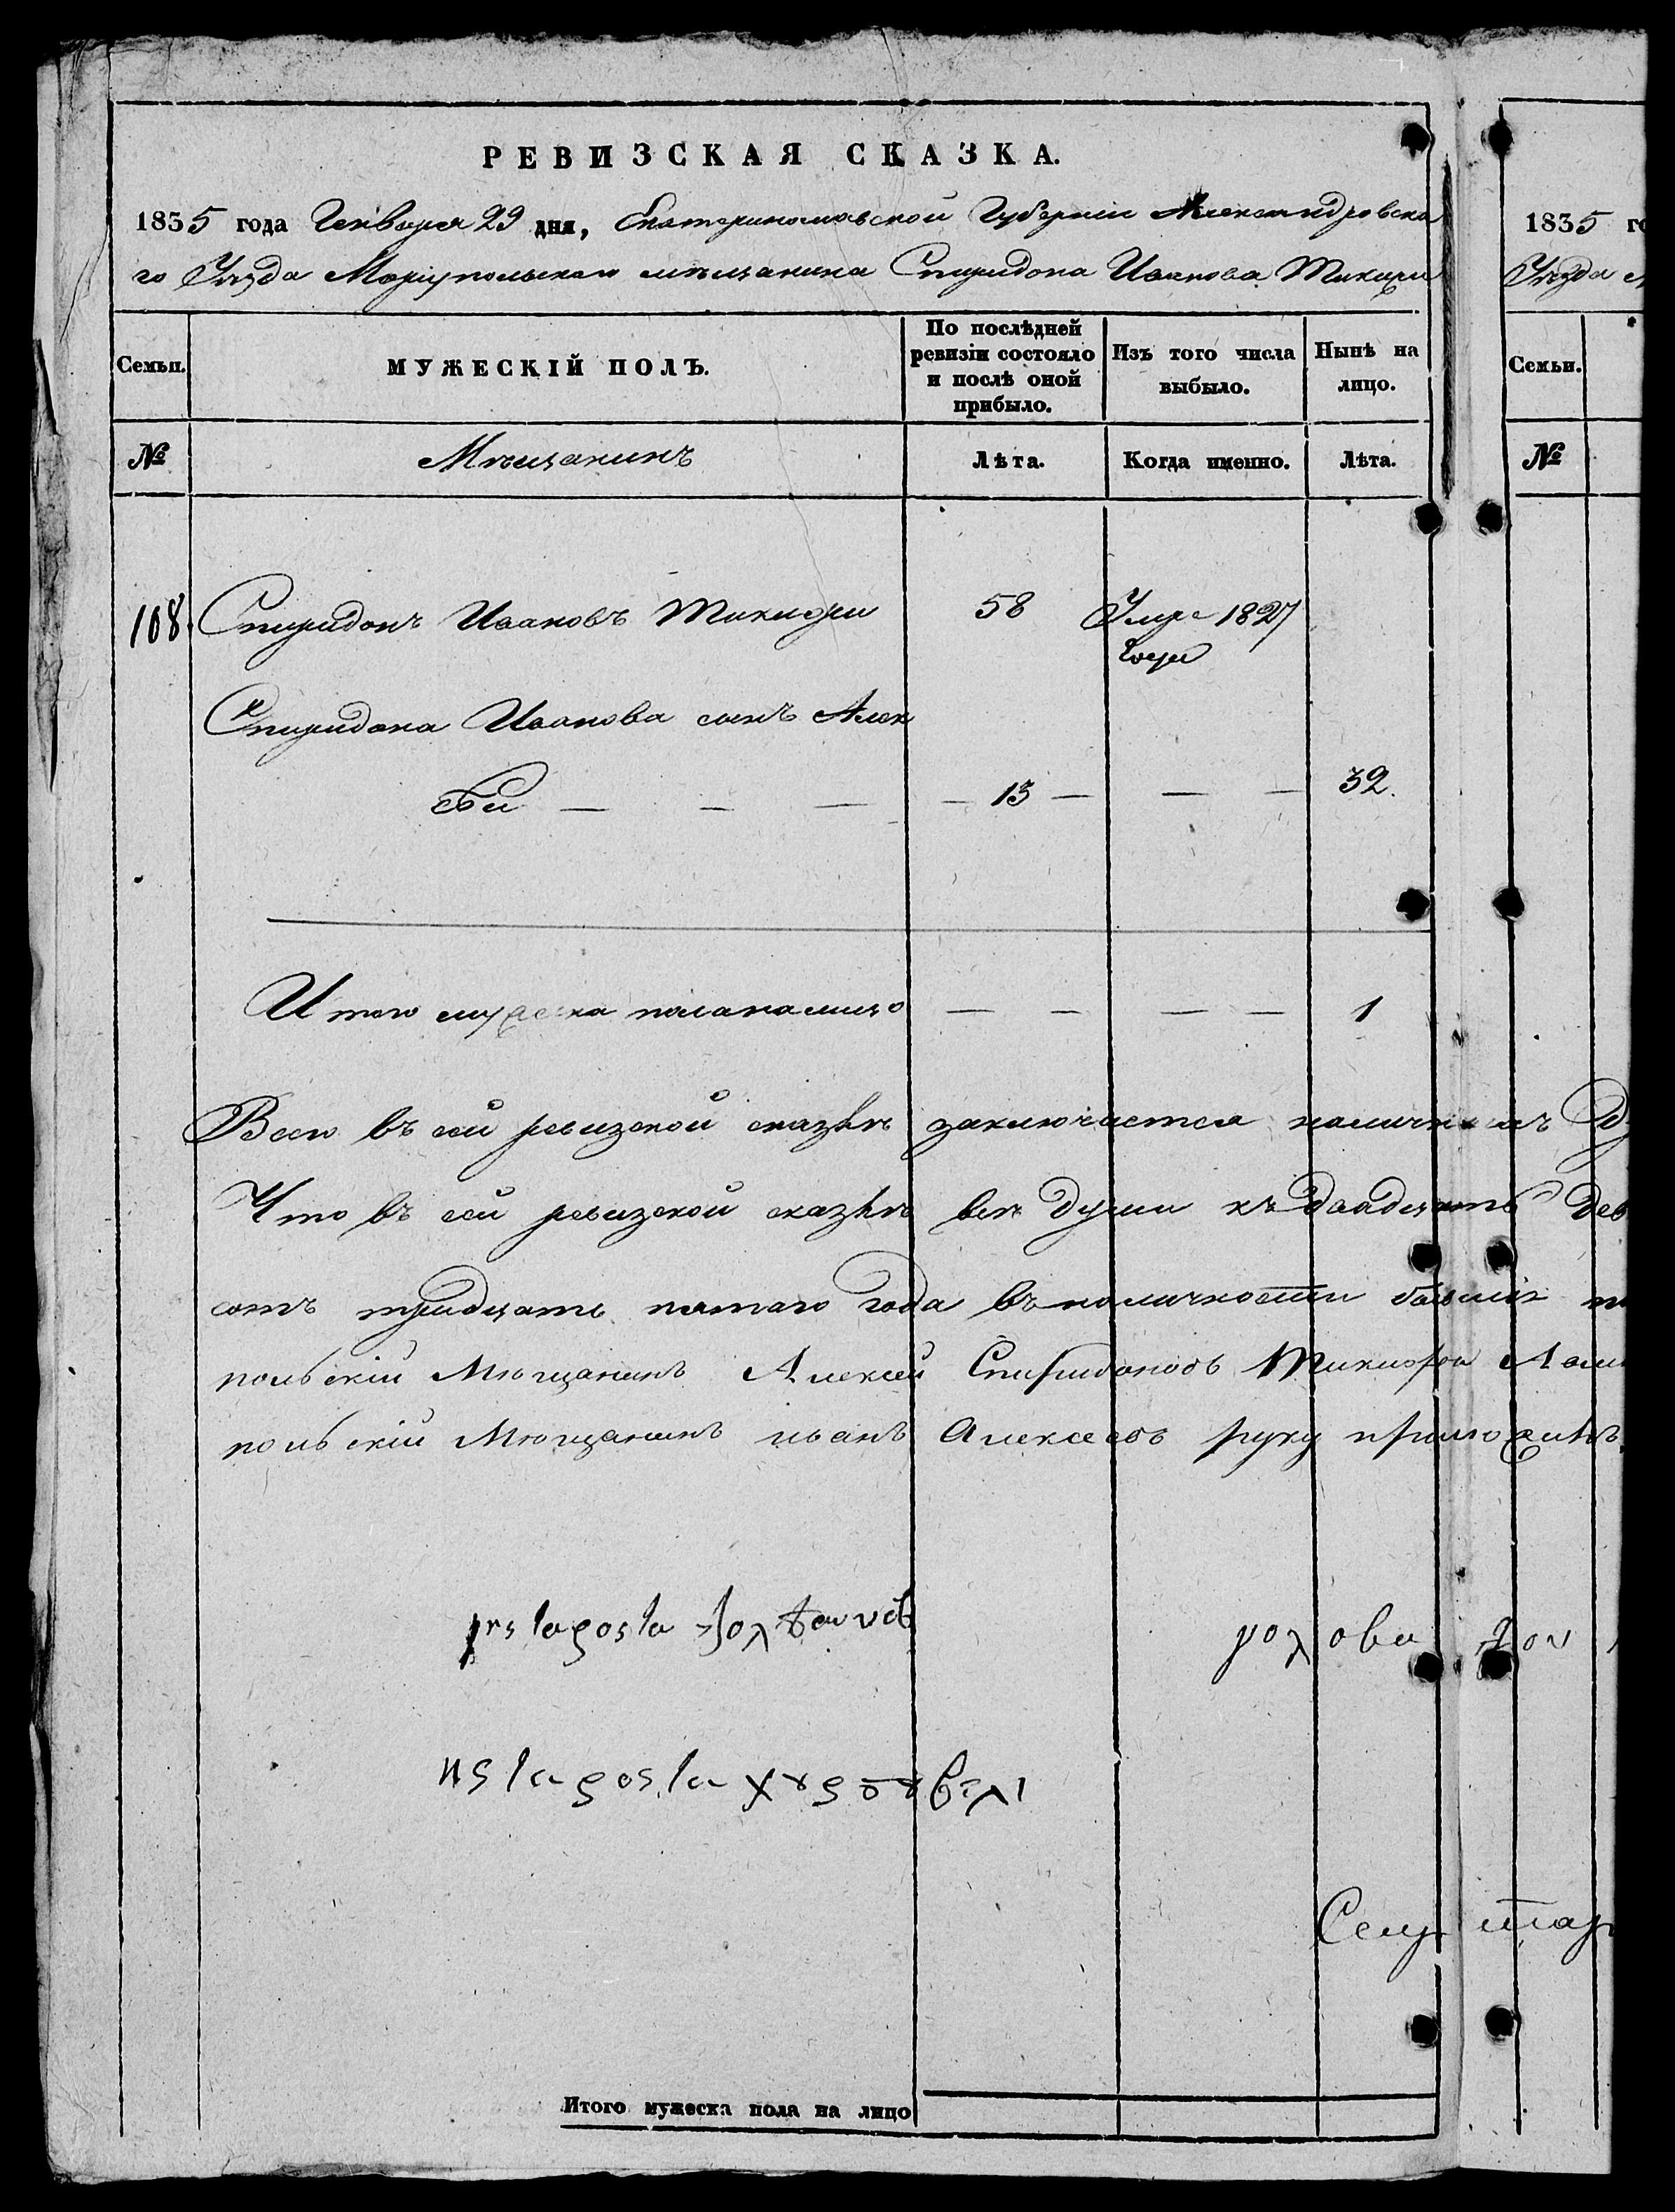 РЕВИЗСКАЯ СКАЗКА.
1835 года Генваря 29 дня, Екатеринославской Губерніи Александровска
го Уѣзда Маріупольскаго мѣщанина Спиридона Иванова
Семьи.
МУЖЕСКІЙ ПОЛЪ.
По послѣдней ревизіи состояло и послѣ оной прибыло.
Изъ того числа выбыло.
Нынѣ на лицо.
№
Мѣщанинъ
Лѣта.
Когда именно.
Лѣта.
108. Спиридонъ Ивановъ 58 Умре 1827
года
Спиридона Иванова сынъ Алек
сѣй — — — — 13 — — — 32.
Итого мужеска пола на лицо — — — — 1
Всего въ сей ревизской сказкѣ заключается
Что въ сей ревизской сказкѣ всѣ души къ двадцать дев
сотъ тридцать пятаго года въ наличности
польскій Мѣщанинъ Алексей Спиридоновъ
польскій Мѣщанинъ иванъ Алексеевъ руку приложилъ
γολοβα
Итого мужеска пола на лицо
1835 го
Уѣзда
Семьи.
№